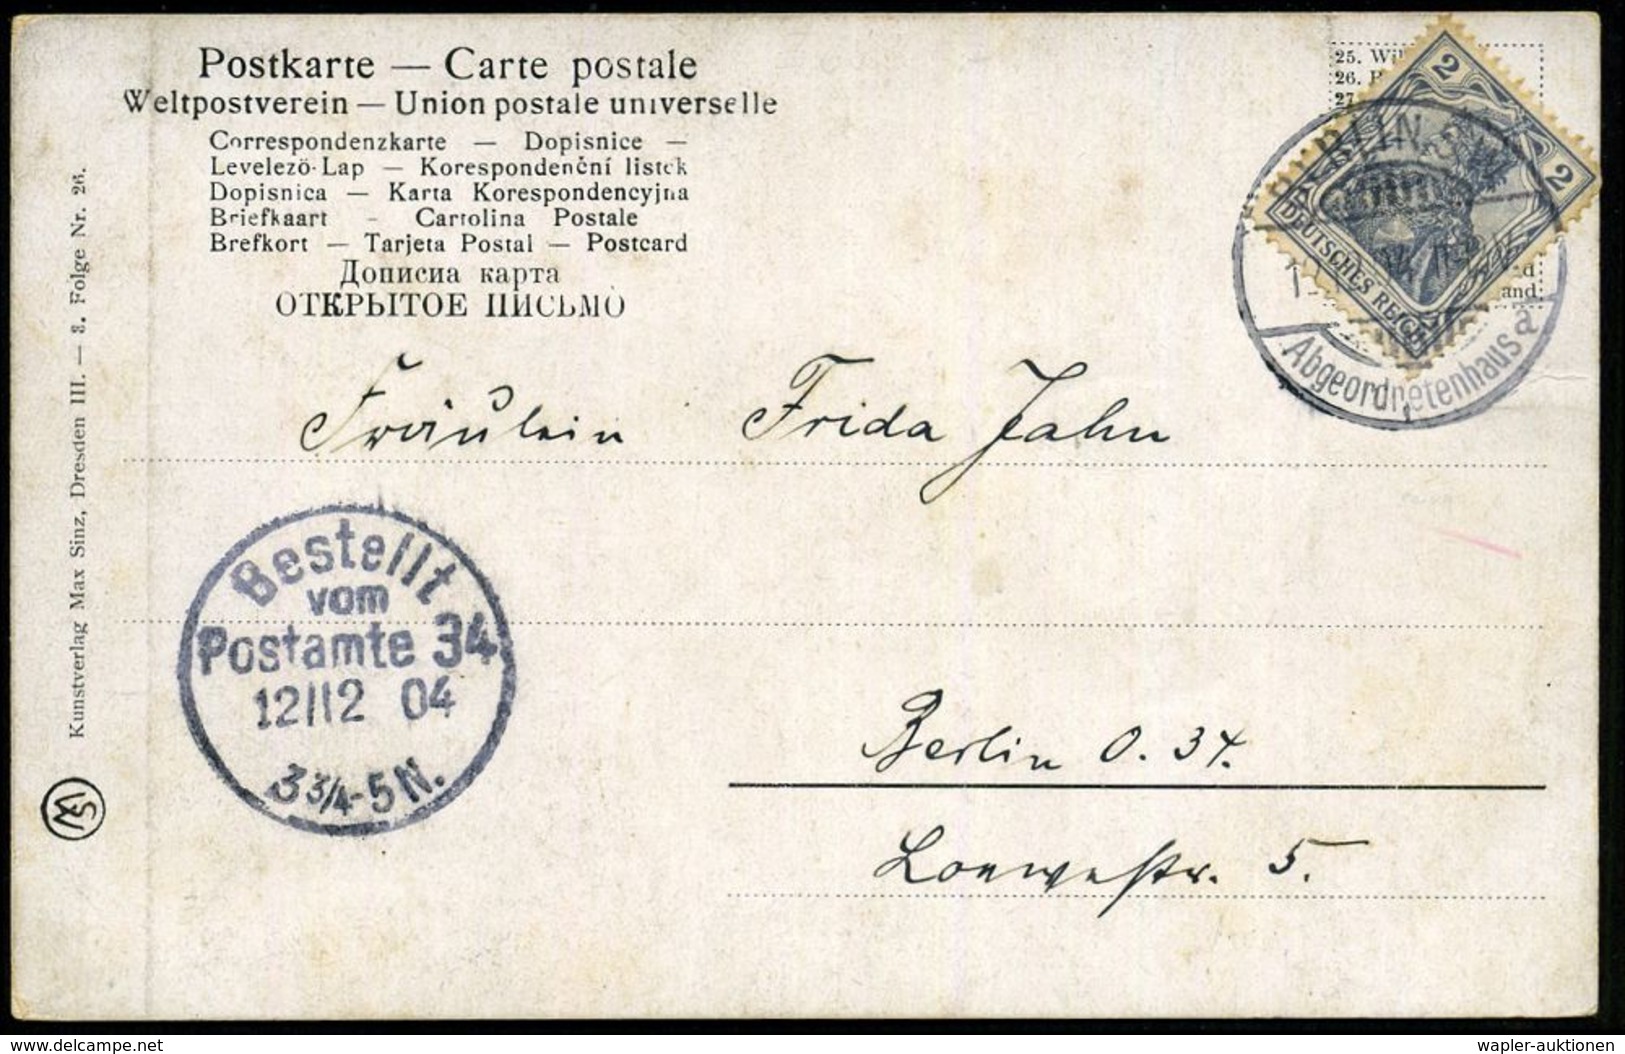 Postkarte — Carte postale
Weltpostverein — Union postale universelle
Correspondenzkarte — Dopisnice —
Levelező-Lap — Korespondenční listek
Dopisnica — Karta Korespondencyjna
Briefkaart - Cartolina Postale
Brefkort — Tarjeta Postal — Postcard
Дописна карта
ОТКРЫТОЕ ПИСЬМО
25.
26.
27.
and
2
2
DEUTSCHES REICH
BERLIN S.W.
Abgeordnetenhaus a
Kunstverlag Max Sinz, Dresden III. — 3. Folge Nr. 26.
Fräulein Frida Jahn
Bestellt
vom
Postamte 34
12/12 04
3 3/4-5 N.
Berlin O. 34.
Loewestr. 5.
www.delcampe.net
wapler-auktionen